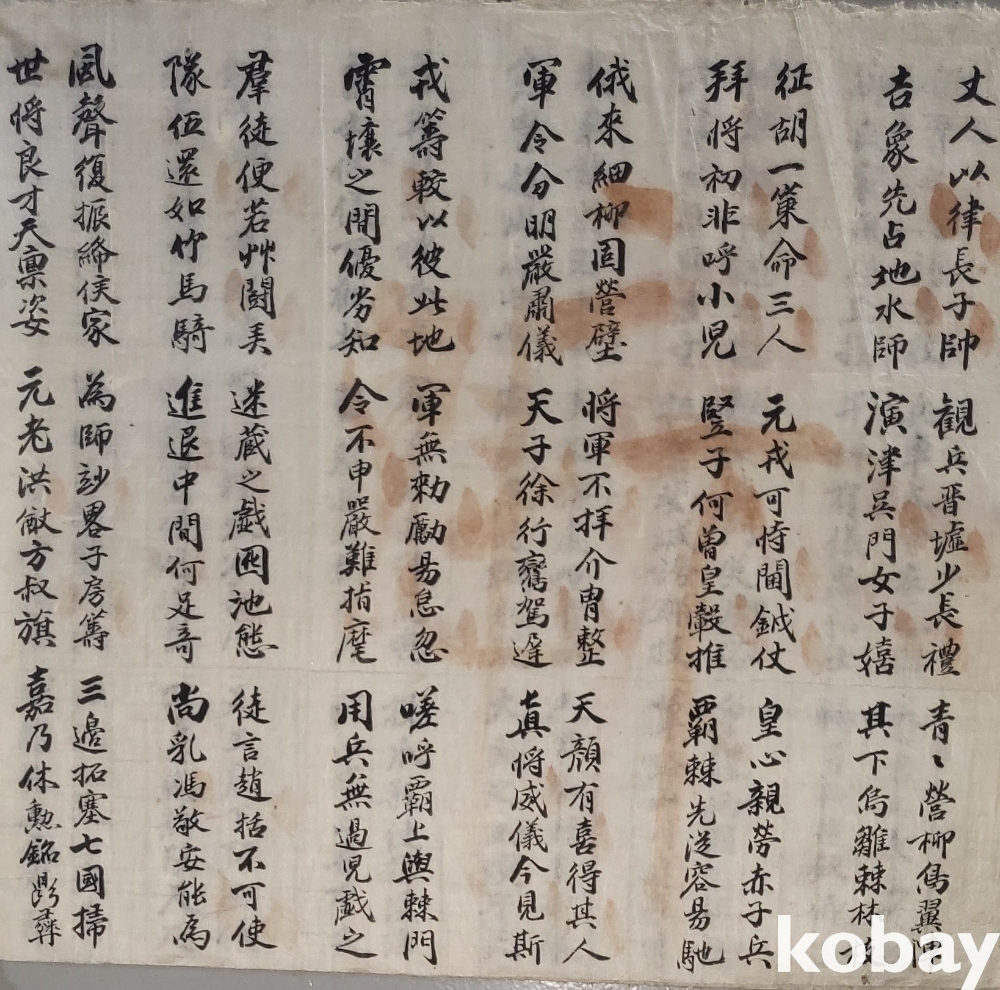 丈人以律長子帥 觀兵晋墟少長禮 青〻營柳鳥翼陣
吉象先占地水師 演津吳門女子嬉 其下烏雛棘林
征胡一策命三人 元戎可恃閫鉞仗 皇心親勞赤子兵
拜將初非呼小児 竪子何曾皇轂推 覇棘先從容易馳
俄來細柳固營壁 將軍不拜介胄整 天顔有喜得其人
軍令分明嚴肅儀 天子徐行鸞駕遲 眞將威儀今見斯
戎籌較以彼此地 軍無勑勵易怠忽 嗟呼覇上與棘門
霄壤之間優劣知 令不申嚴難指麾 用兵無過児戲之
羣徒便若艸鬪美 迷藏之戲囦池態 徒言趙括不可使
隊伍還如竹馬騎 進退中間何足奇 尚乳馮敬安能為
風聲復振絳侯家 為師妙畧子房籌 三邊拓塞七國掃
世將良才天稟姿 元老洪猷方叔旗 嘉乃休勲銘鼎彛
kobay